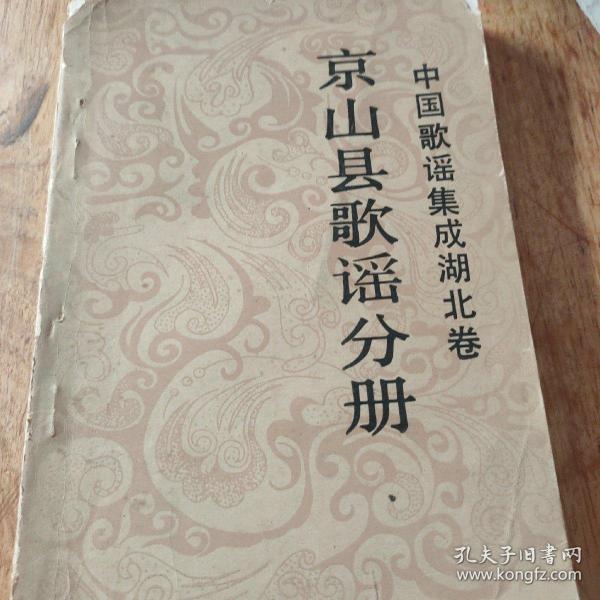 中国歌谣集成湖北卷
京山县歌谣分册
孔夫子旧書网
www.kongfz.com